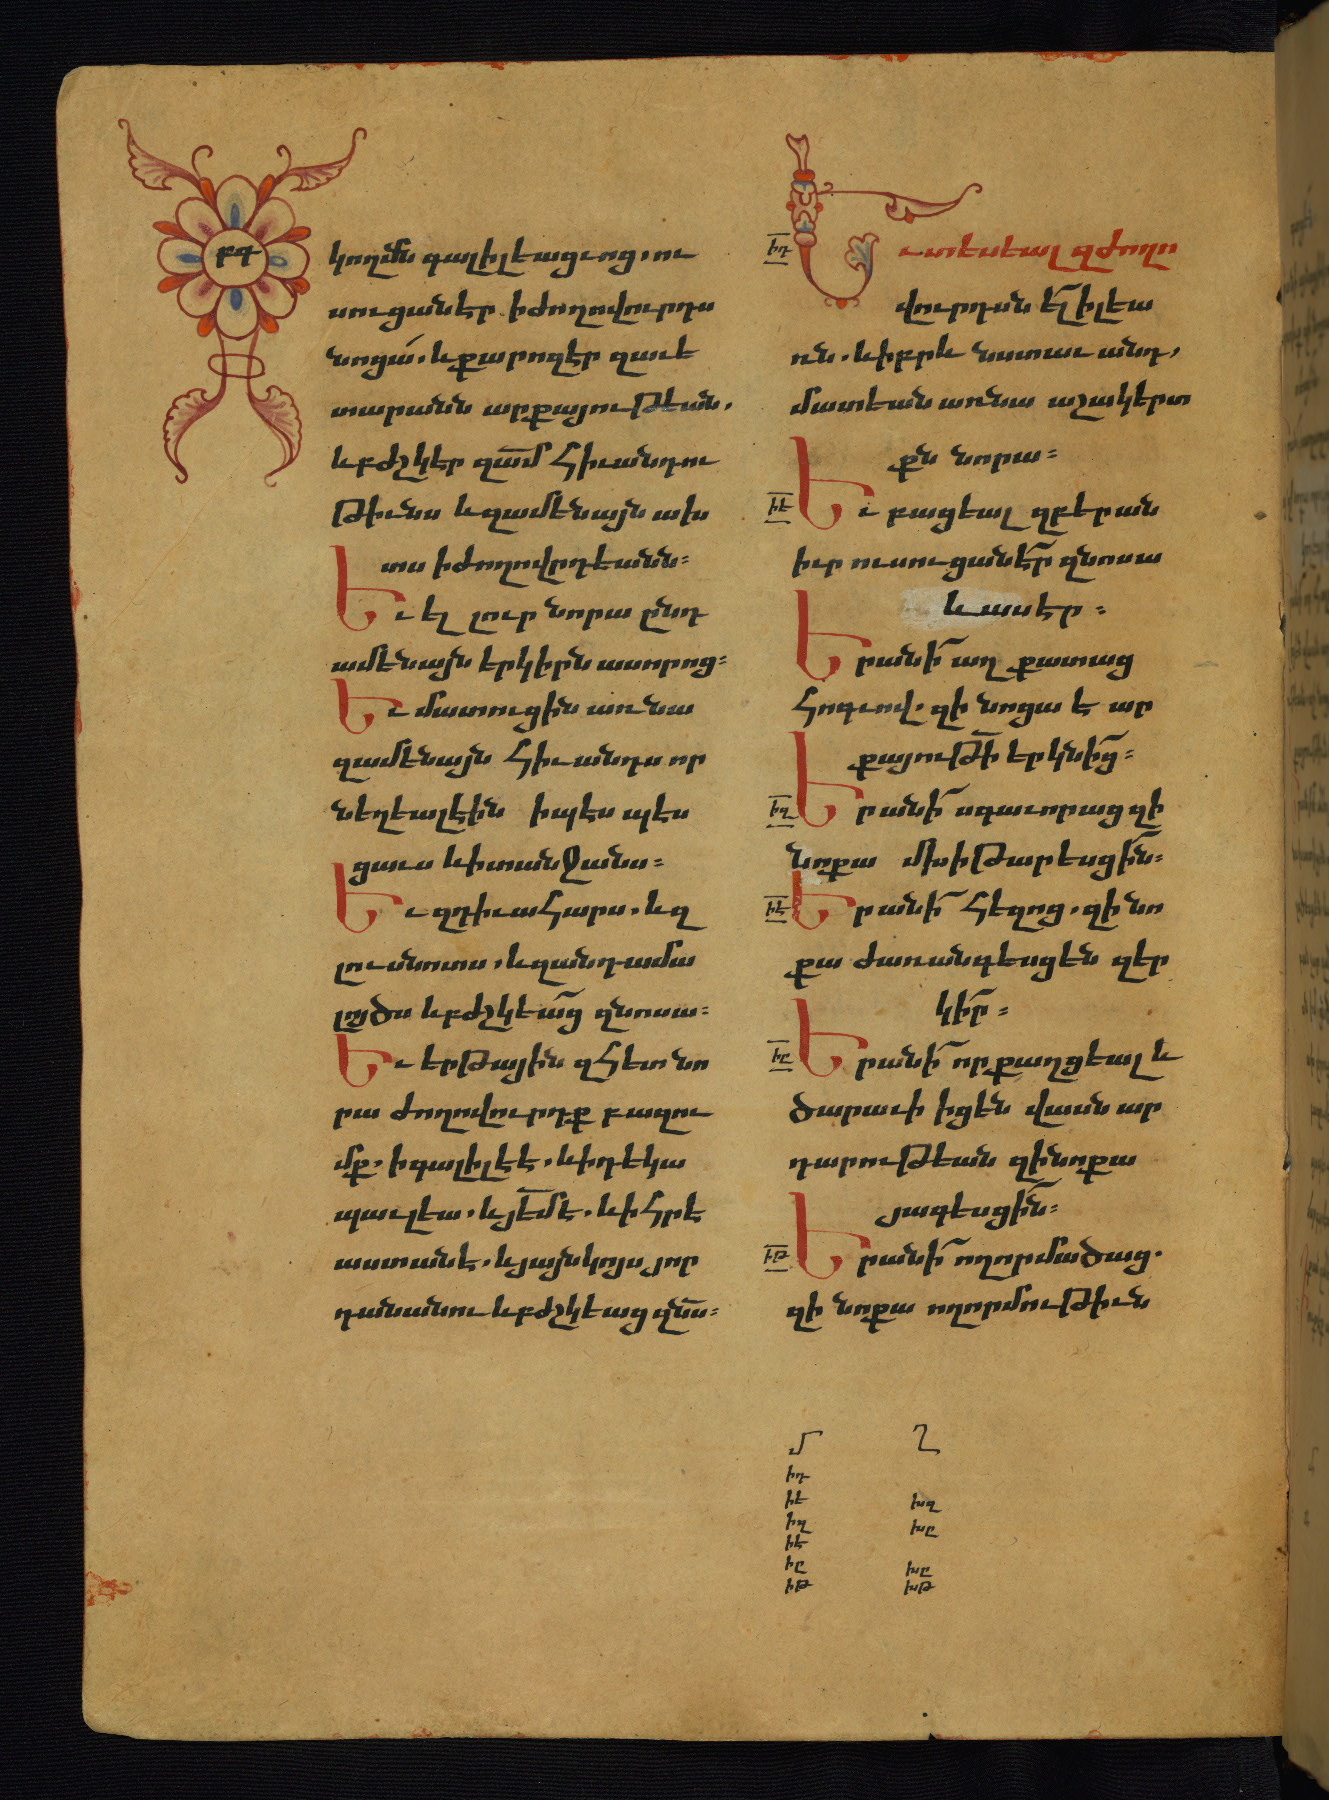 րգ
կողմն գալիլեացւոց. ու
սուցանէր ի ժողովուրդս
նոցա. և քարոզէր զաւե
տարանն արքայութեան.
և բժշկէր զամ հիւանդու
թիւնս և զամենայն ախ
տս ի ժողովրդեանն։
Եւ էլ լուր նորա ընդ
ամենայն երկիրն ասորոց։
Եւ մատուցին առ նա
զամենայն հիւանդս որ
նեղեալ էին ի պէս պէս
ցաւս և ի տանջանս։
Եւ զդիւահարս. և զ
լուսնոտս. և զանդամա
լոյծս և բժշկեաց զնոսա։
Եւ երթային զհետ նո
րա ժողովուրդք բազու
մք. ի գալիլեէ. և ի դեկա
պաւլեա. և յեմէ. և ի հրէ
աստանէ. և յայնկոյս յոր
դանանու և բժշկեաց զնս։
իդ
Եւ տեսեալ զժողո
վուրդսն ել ի լեա
ռն. և իբրև նստաւ անդ,
մատեան առ նա աշակերտ
քն նորա։
իե
Եւ բացեալ զբերան
իւր ուսուցանէր զնոսա
և ասէր։
Երանի աղքատաց
հոգւով. զի նոցա է ար
քայութի երկնից։
իզ
Երանի սգաւորաց զի
նոքա մխիթարեսցին։
իէ
Երանի հեզոց. զի նո
քա ժառանգեսցեն զեր
կիր։
իը
Երանի որ քաղցեալ և
ծարաւի իցեն վասն ար
դարութեան զի նոքա
յագեսցին։
իթ
Երանի ողորմածաց.
զի նոքա ողորմութիւն
մ ղ
իդ
իե խզ
իզ խը
իէ
իը խը
իթ խթ